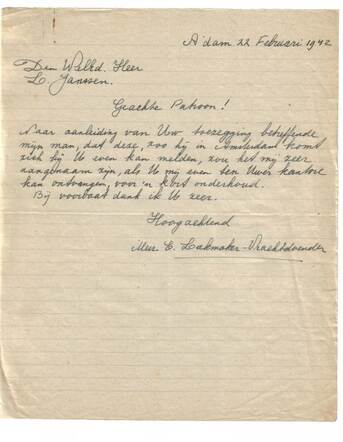 A'dam 22 Februari 1942
Den WelEd. Heer
L. Janssen.
Geachte Patroon!
Naar aanleiding van Uw toezegging betreffende
mijn man, dat deze, zoo hij in Amsterdam komt
zich bij U even kan melden, zou het mij zeer
aangenaam zijn, als U mij even ten Uwen kantore
kan ontvangen, voor 'n kort onderhoud.
Bij voorbaat dank ik U zeer.
Hoogachtend
Mevr E. Lakmaker-Vrachtdoender